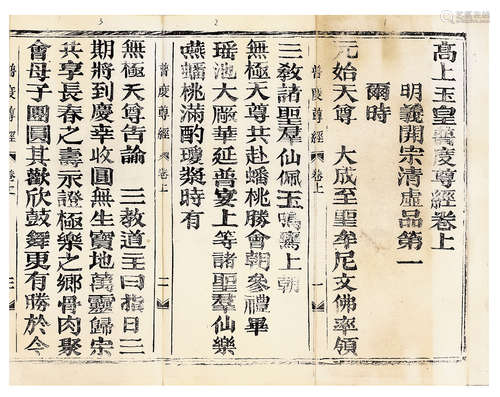 高上玉皇普度尊經卷上
明義開宗清虛品第一
爾時
元始天尊 大成至聖牟尼文佛率領
普度尊經 卷上 一
三教諸聖羣仙佩玉鳴鸞上朝
無極天尊共赴蟠桃勝會朝參禮畢
瑶池大厰華延普宴上等諸聖羣仙樂
嚥蟠桃滿酌瓊漿時有
普度尊經 卷上 二
無極天尊告諭 三教道主曰指日三
期將到慶幸收圓無生寶地萬靈歸宗
共享長春之壽永證極樂之鄉骨肉聚
會母子團圓其歡欣鼓舞更有勝於今
普度尊經 卷上 三